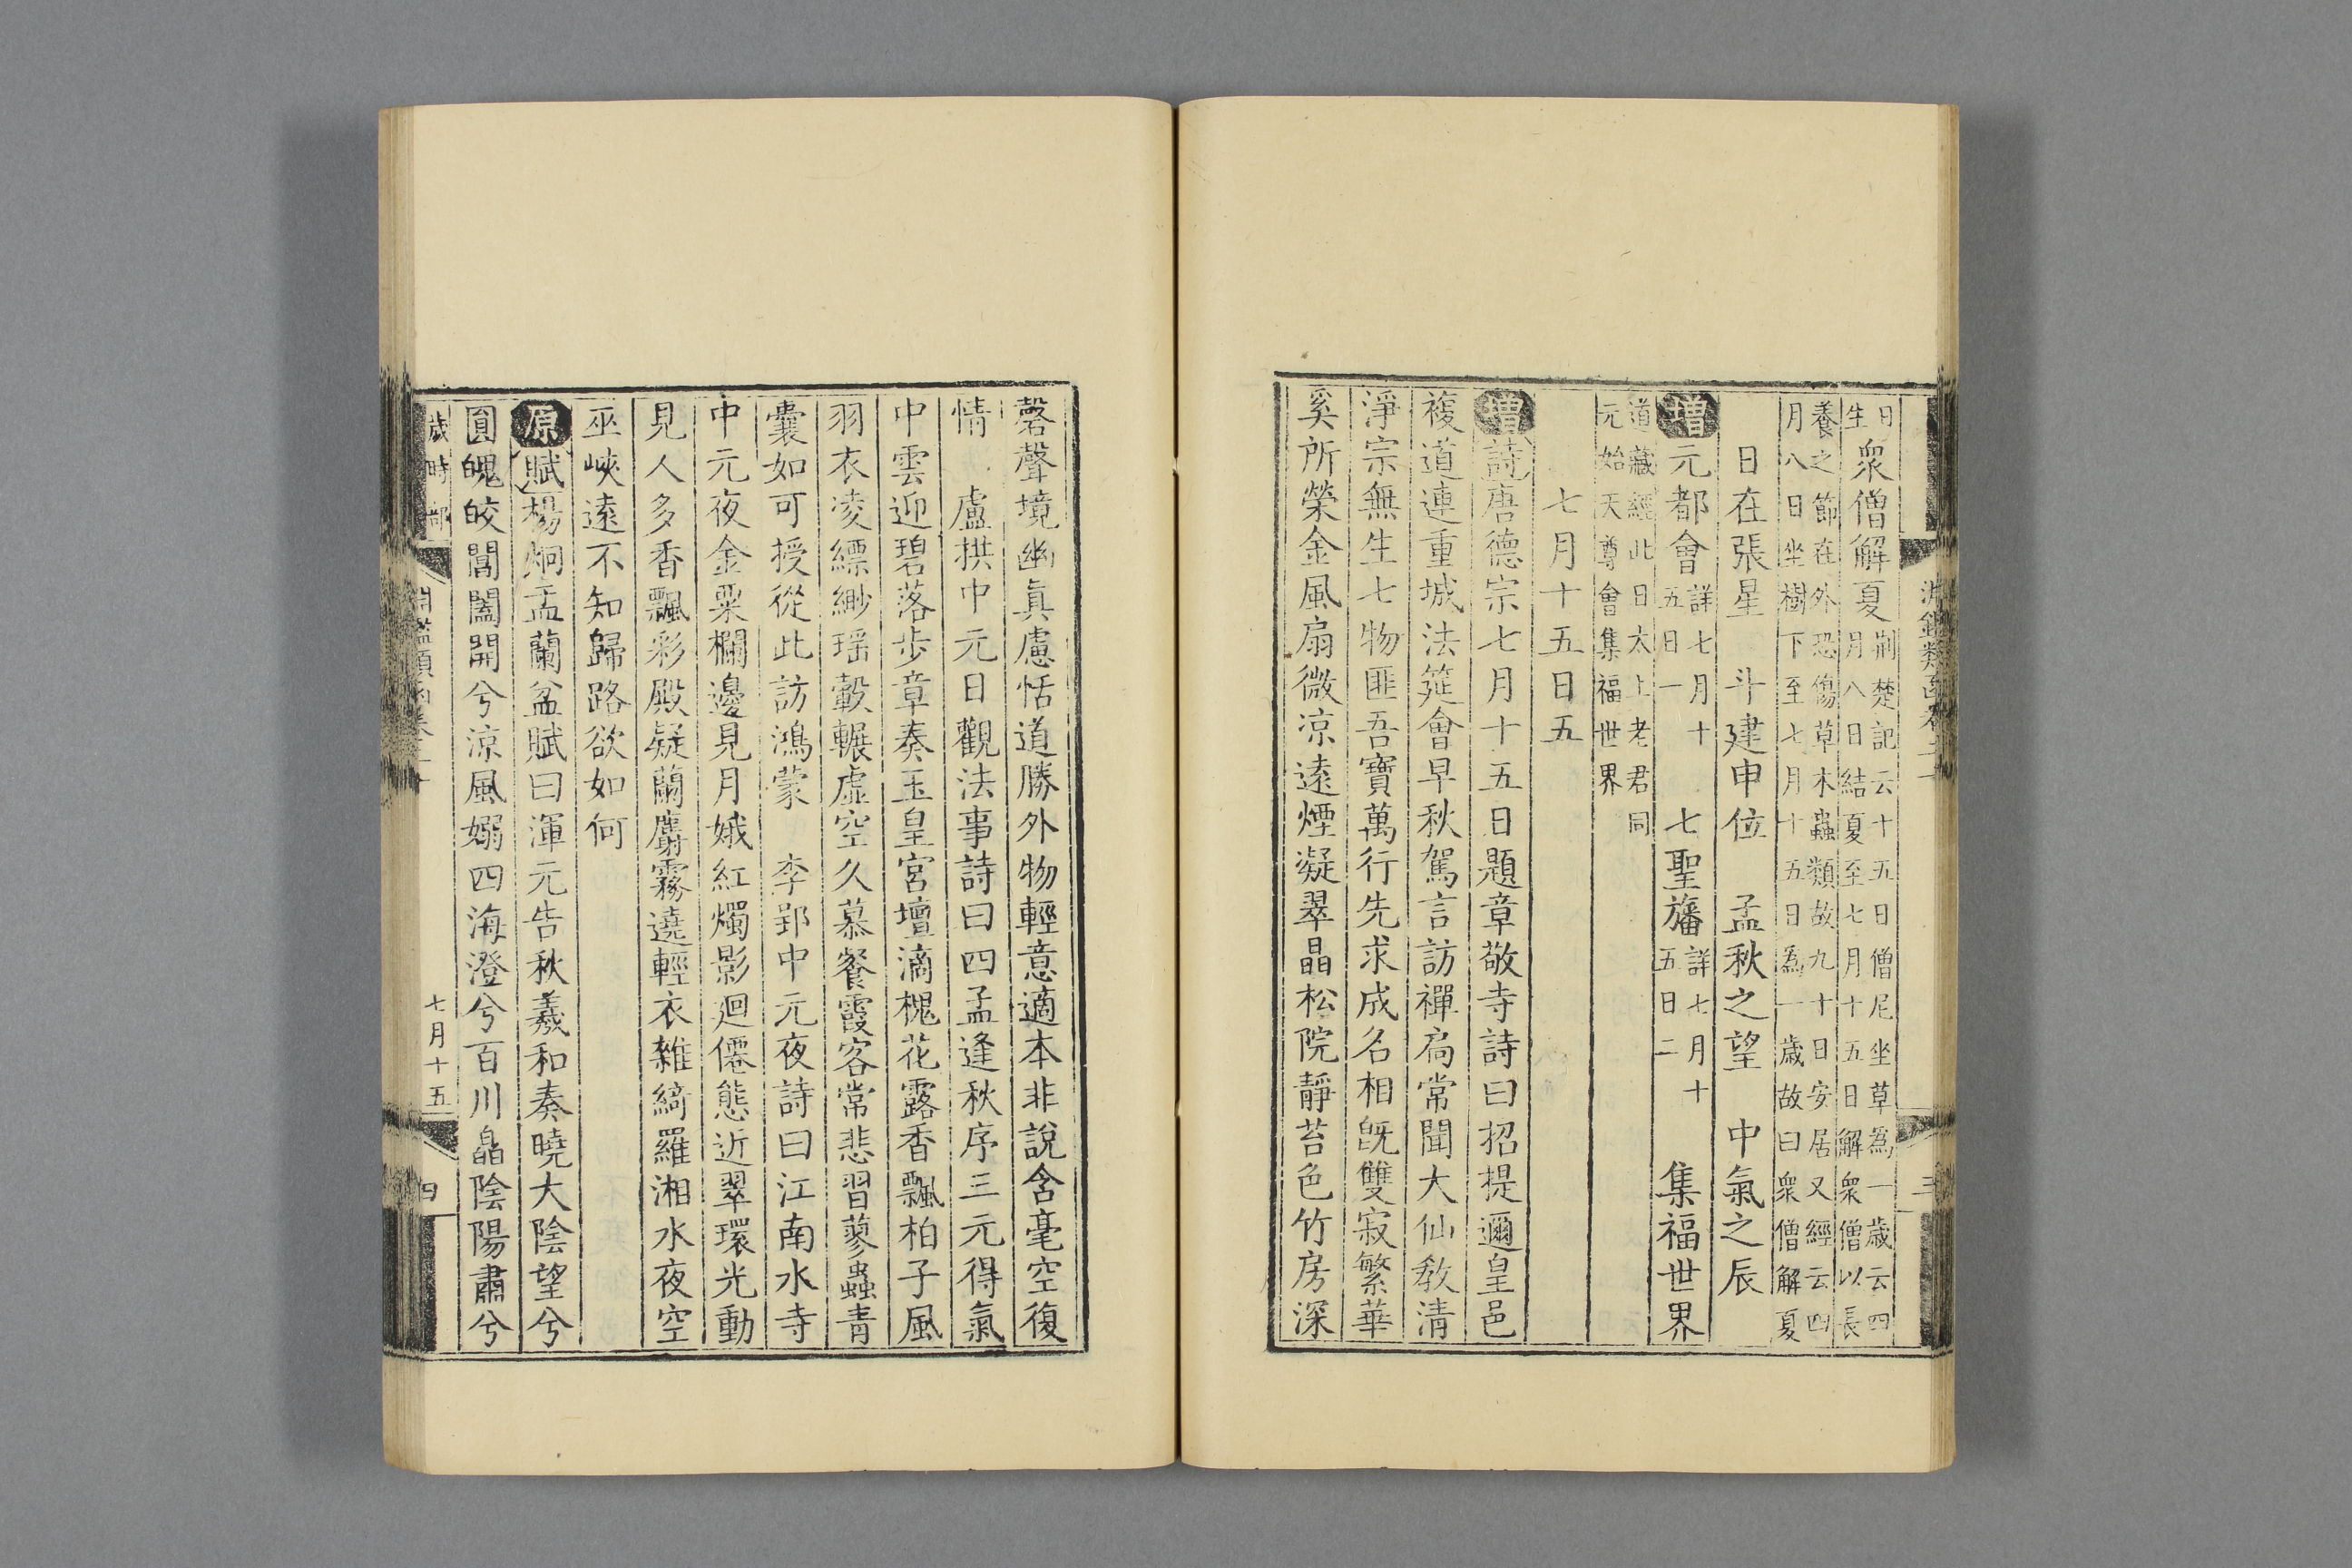 淵鑑類函卷二十
三
日生衆僧解夏荆楚記云十五日僧尼坐草為一歲云四月八日結夏至七月十五日解衆僧以長
養之節在外恐傷草木蟲類故九十日安居又經云四月八日坐樹下至七月十五日為一歲故曰衆僧解夏
日在張星 斗建申位 孟秋之望 中氣之辰
增元都會詳七月十五日一 七聖旛詳七月十五日二 集福世界
道藏經此日太上老君同元始天尊會集福世界
七月十五日五
增詩唐德宗七月十五日題章敬寺詩曰招提邇皇邑
複道連重城法筵會早秋駕言訪禪扃常聞大仙敎清
淨宗無生七物匪吾寶萬行先求成名相旣雙寂繁華
奚所榮金風扇微凉遠煙凝翠晶松院靜苔色竹房深
磬聲境幽眞慮恬道勝外物輕意適本非說含毫空復
情 盧拱中元日觀法事詩曰四孟逢秋序三元得氣
中雲迎碧落步章奏玉皇宮壇滴槐花露香飄柏子風
羽衣凌縹緲瑶轂輾虛空久慕餐霞客常悲習蓼蟲青
囊如可授從此訪鴻蒙 李郢中元夜詩曰江南水寺
中元夜金粟欄邊見月娥紅燭影迴僊態近翠環光動
見人多香飄彩殿凝蘭麝霧遶輕衣雜綺羅湘水夜空
巫峽遠不知歸路欲如何
原賦楊炯盂蘭盆賦曰渾元告秋羲和奏曉大陰望兮
圓魄皎閶闔開兮涼風嫋四海澄兮百川晶陰陽肅兮
歲時部
淵鑑類函卷二十
七月十五
四